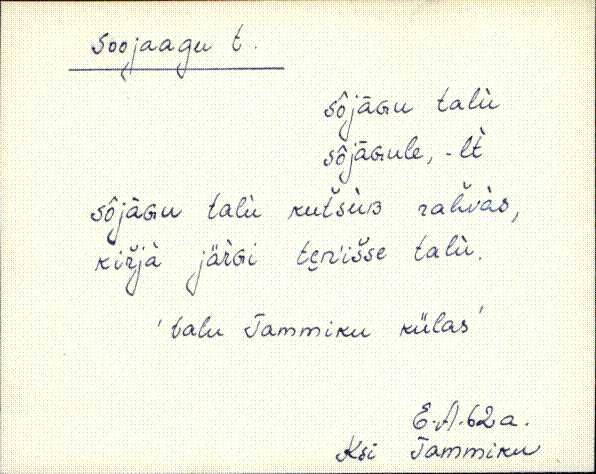 Soojaagu t.
sôjāGu talù
sôjāGule, -lt̀
sôjāGu talù kutšùB rahvàs,
kiřjà jäřGi teńišse talù.
'talu Tammiku külas'
E.A.62a.
Ksi Tammiku